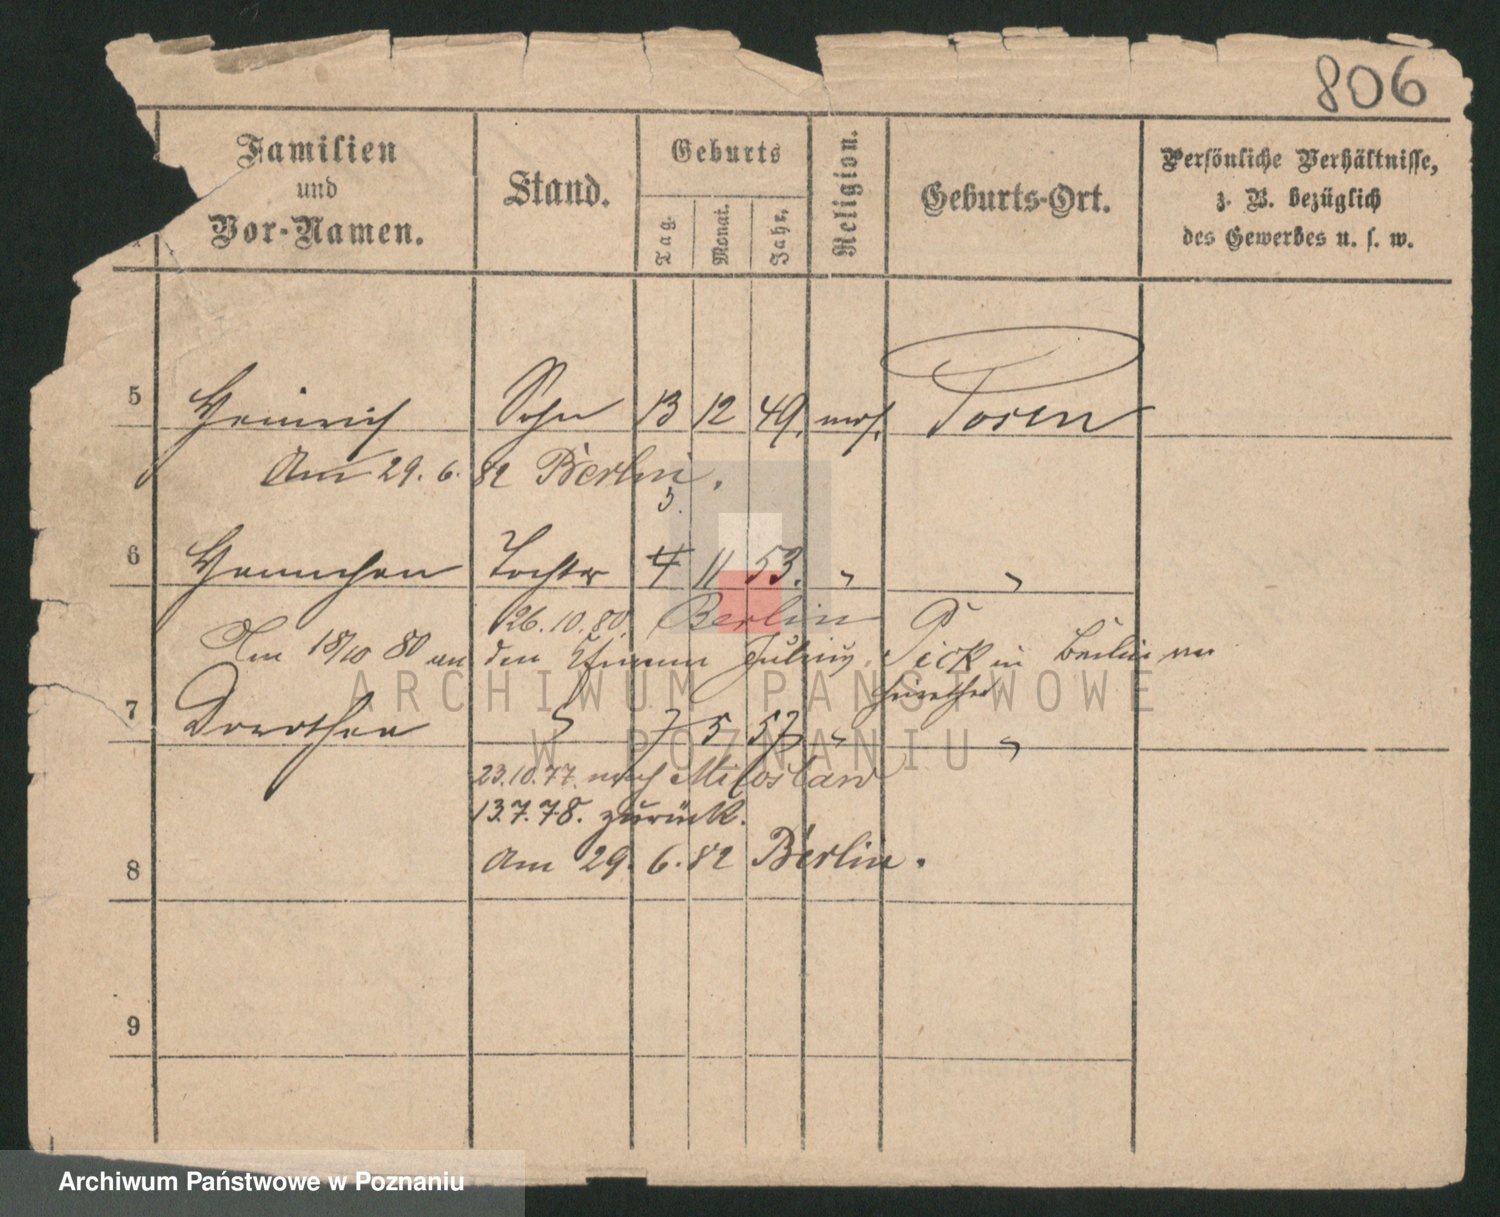 806
Familien
und
Vor-Namen.
Stand.
Geburts
Tag.
Monat.
Jahr.
Religion.
Geburts-Ort.
Persönliche Verhältnisse,
z. B. bezüglich
des Gewerbes u. s. w.
5 Heinrich Sohn 13 12 49. mos. Posen
Am 29. 6. 82 Berlin.
5.
6 Hannchen Tochter 4 11 53. " "
26. 10. 80. Berlin
Am 18/10 80 an den Kfmann Julius Pick in Berlin ver
heirathet
7 Dorothea " 7 5 57 " "
23.10.77. nach Miloslaw
13.7.78. zurück.
Am 29. 6. 82 Berlin.
8
9
ARCHIWUM PAŃSTWOWE
W POZNANIU
Archiwum Państwowe w Poznaniu